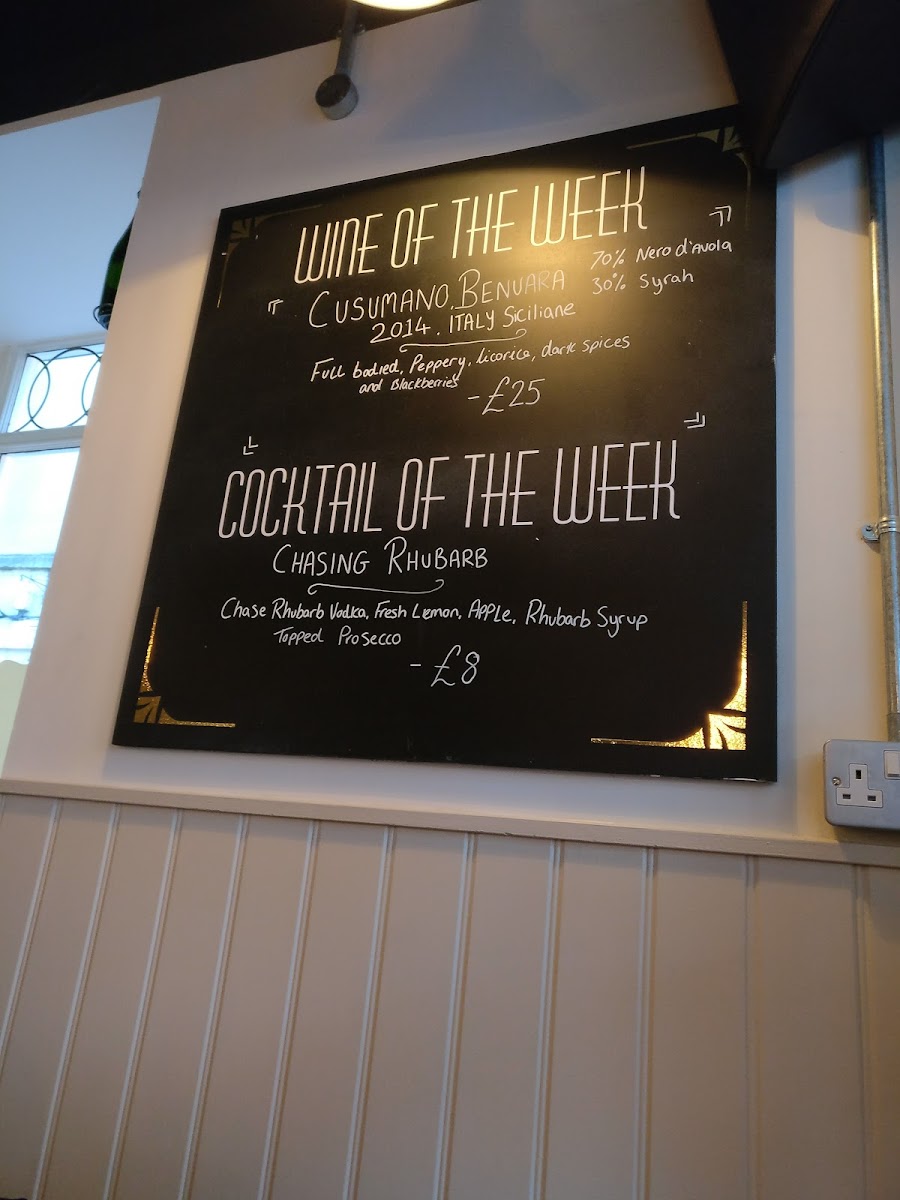 WINE OF THE WEEK
CUSUMANO. BENUARA
70% Nero d'Avola
30% Syrah
2014. ITALY Siciliane
Full bodied, Peppery, licorice, dark spices
and Blackberries
- £25
COCKTAIL OF THE WEEK
CHASING RHUBARB
Chase Rhubarb Vodka, Fresh Lemon, APPLE, Rhubarb Syrup
Topped Prosecco
- £8